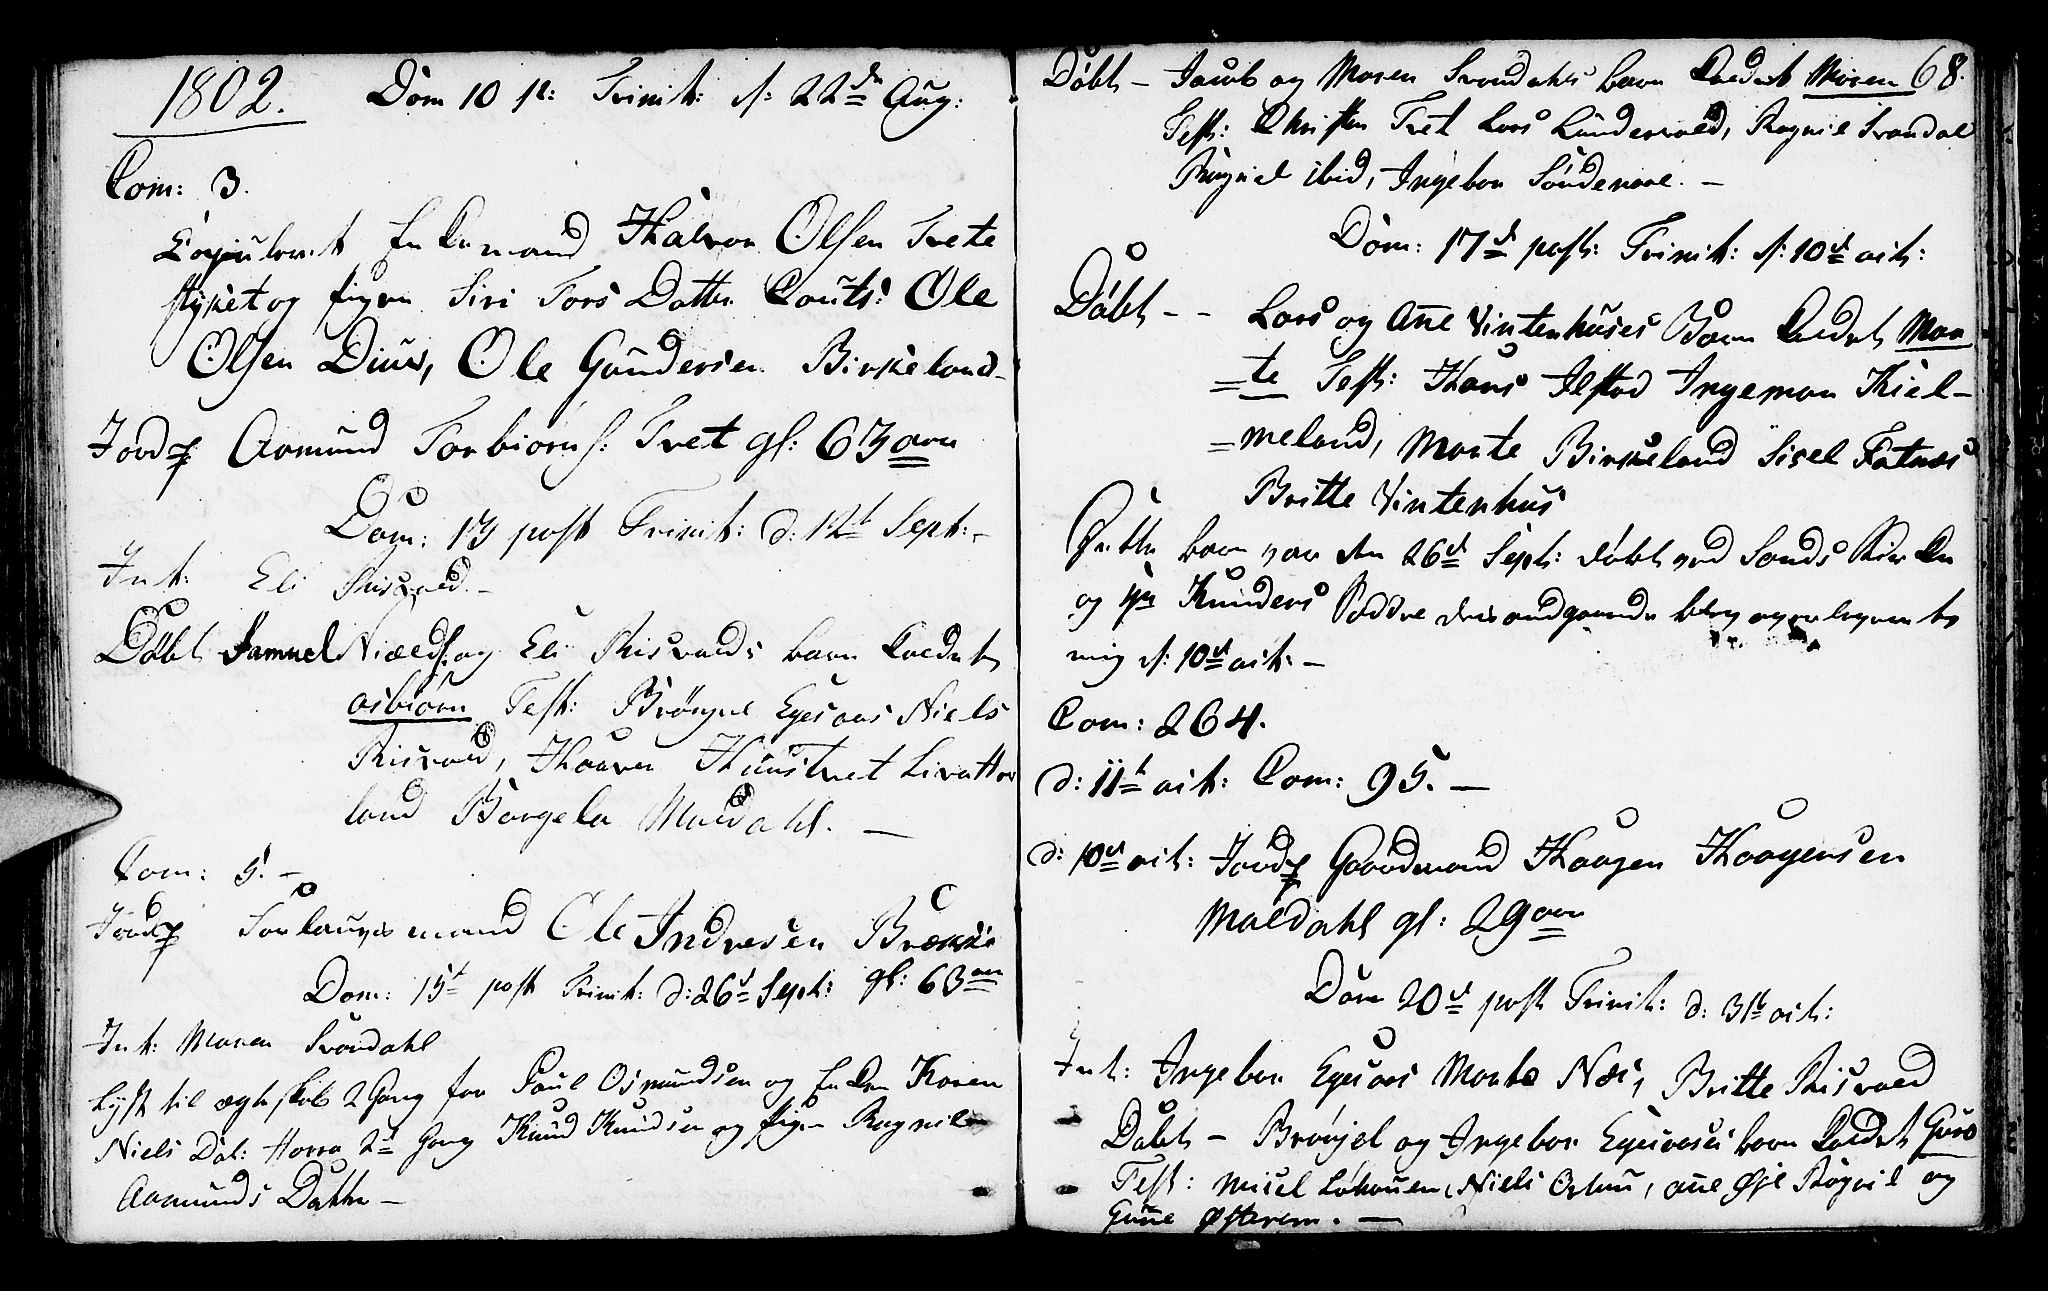 1802. Dom 10 p: Trinit: d: 22de Aug:
Com: 3.
Copuleret Enkemand Halvor Olsen Trete
stykket og pigen Siri Tors Datter Cauts: Ole
Olsen Diuv, Ole Gundersen Birkeland
Jordf Aamund Torbiørns: Tvet gl: 63 aar
Dom: 13 post Trinit: d: 12te Sept: -
Int: Eli Risvold. -
Døbt Samuel Nields: og Eli Risvolds barn kaldet
Asbiørn Test: Brøynel Egesaas Niels
Risvold, Haaver Haustvet Liva Hov
land Børgela Maldahl. -
Com: 5. -
Jordf Sorlaugs mand Ole Indresen Brække
gl: 63 aar
Dom: 15de post Trinit: d: 26de Sept:
Int: Maren Svondahl
Lyst til ægteskab 2 Gang for Poul Osmundsen og Enken Karen
Niels Dat: Horra 2de Gang Knud Knudsen og pigen Ragnil
Aamunds Datter -
Døbt - Jacob og Maren Svondahls barn kaldet Maren 68.
Test: Christen Tvet Lars Lundervold, Ragnil Svandal
Ragnil ibid, Ingebor Søndenaae. -
Dom: 17de post: Trinit: d: 10de oct:
Døbt - - Lars og Anne Vintenhuses Barn kaldet Mar
=te Test: Hans Ilstad Ingemar Kiel-
=meland, Marte Birkeland Sisel Fatnæs
Britte Vintenhus
Dette barn var den 26de Sept: døbt ved Sands Kirke
og Knuders Faddre angaaende blev
mig d: 10de oct: -
Com: 264.
d: 11te oct: Com: 95. -
d: 10de oct: Jordf Gaardmand Haagen Haagensen
Maldahl gl: 29 aar
Dom 20de post Trinit: d: 31te oct:
Int: Ingebor Egesaas Marte Næs, Britte Risvold
Døbt - Brøjel og Ingebor Egesaases barn kaldet Guro
Test: Misel Løhousen, Niels Osthus, Anne Øje Ragnil og
Gunne Østerem. -